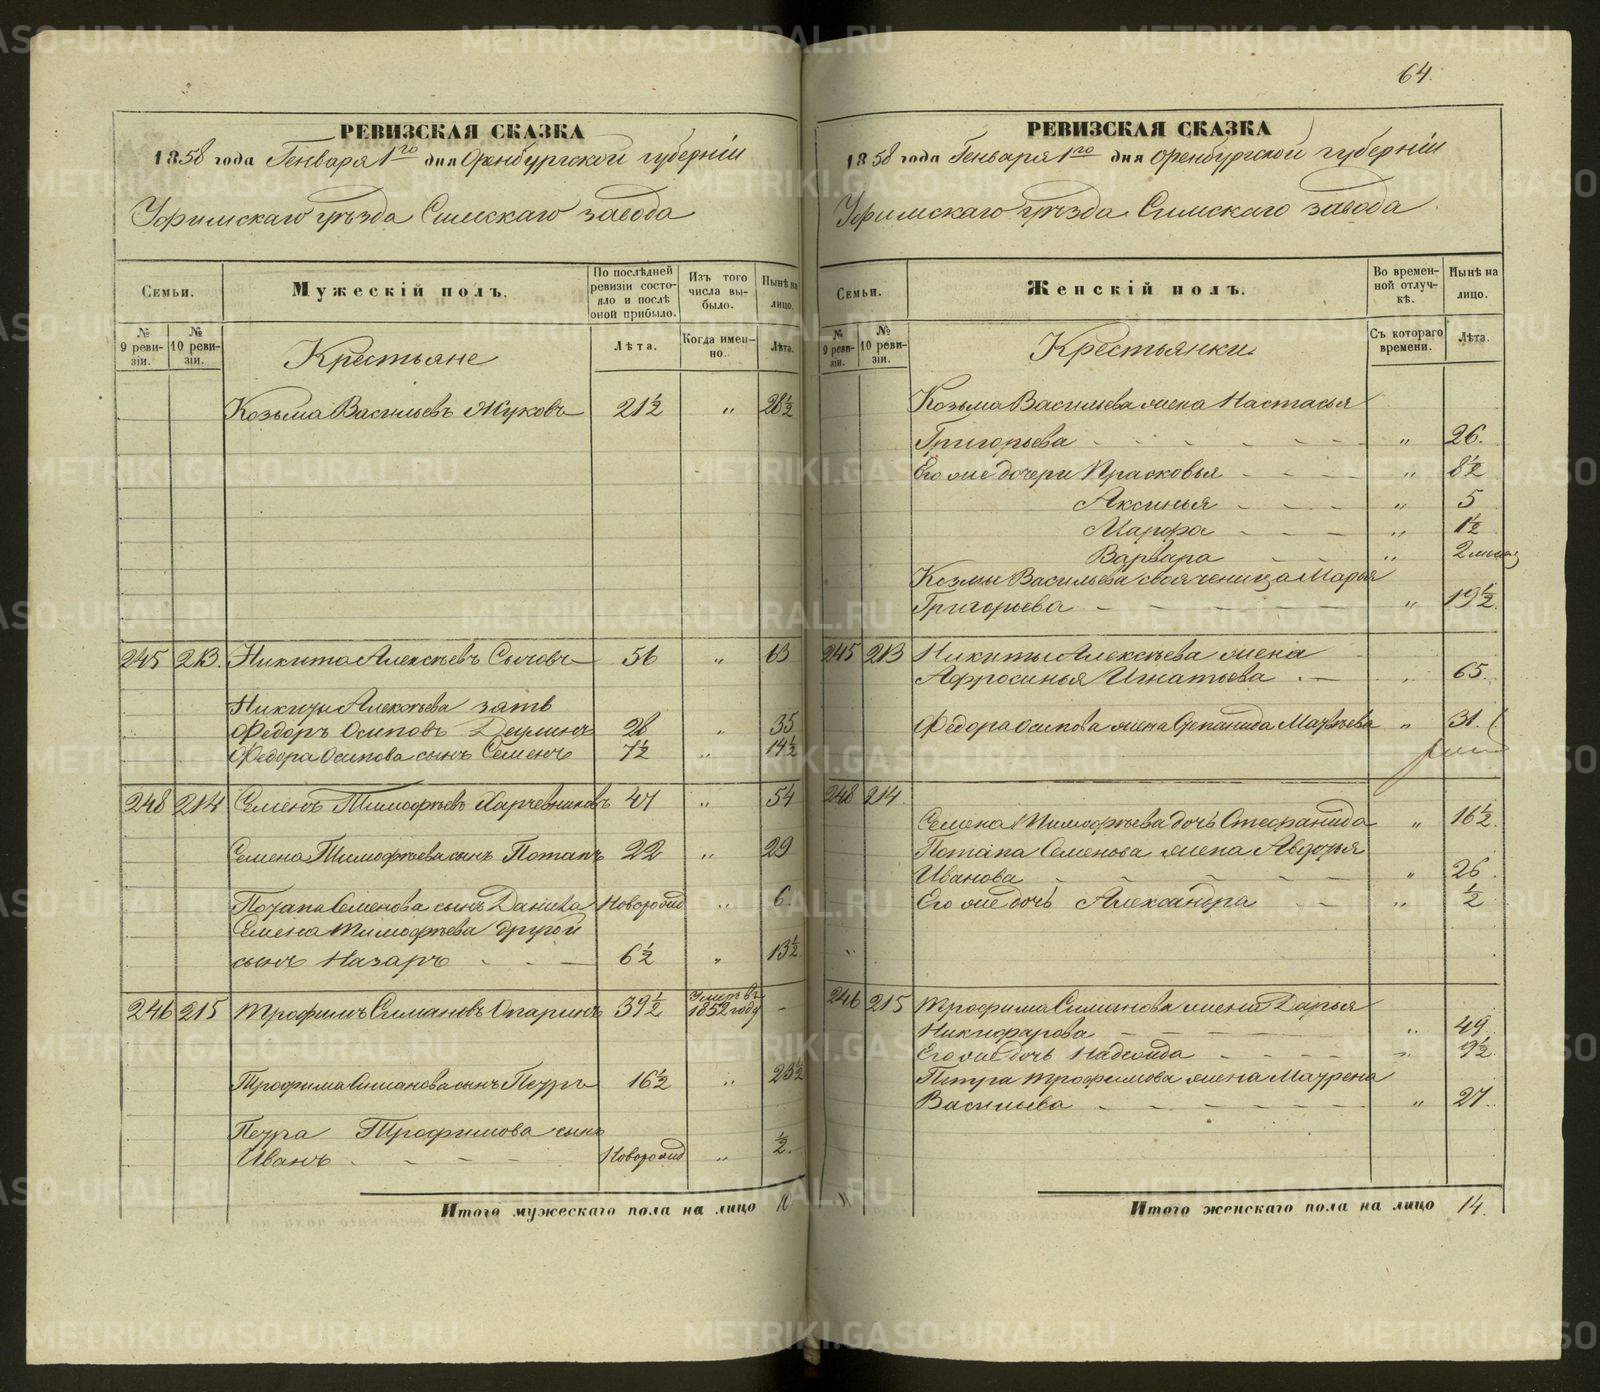 64.
РЕВИЗСКАЯ СКАЗКА
1858 года Генваря 1го дня Оренбургской губернiи
Уфимскаго уѣзда Симскаго завода
Семьи.
Мужескiй полъ.
По послѣдней ревизiи состояло и послѣ оной прибыло.
Изъ того числа выбыло.
Нынѣ на лицо.
№ 9 ревизiи.
№ 10 ревизiи.
Крестьяне
Лѣта.
Когда именно.
Лѣта.
Козьма Васильевъ Жуковъ 21½ " 28½
245 213 Никита Алексѣевъ Сычовъ 56 " 63
Никиты Алексѣева зять
Федоръ Осиповъ Деулинъ 28 " 35
Федора Осипова сынъ Семенъ 7½ " 14½
248 214 Семенъ Тимофѣевъ Харчевниковъ 47 " 54
Семена Тимофѣева сынъ Потапъ 22 " 29
Потапа Семенова сынъ Данила Новорожд " 6
Семена Тимофѣева другой
сынъ Назаръ - - 6½ " 13½
246 215 Трофимъ Симановъ Опаринъ 39½ Умеръ въ 1852 году -
Трофима Симанова сынъ Петръ 16½ " 23½
Петра Трофимова сынъ
Иванъ - - - - Новорожд " ½
Итого мужескаго пола на лицо 10
РЕВИЗСКАЯ СКАЗКА
1858 года Генваря 1го дня Оренбургской губернiи
Уфимскаго уѣзда Симскаго завода
Семьи.
Женскiй полъ.
Во временной отлучкѣ.
Нынѣ на лицо.
№ 9 ревизiи.
№ 10 ревизiи.
Крестьянки
Съ котораго времени.
Лѣта.
Козьма Васильева жена Настасья
Григорьева - - - - - - " 26.
Его же дочери Прасковья - - - " 8½
Аксинья - - - " 5
Марфа - - - " 1½
Варвара - - " 2 месяц
Козмы Васильева свояченица Марья
Григорьева - - - - - - " 19½
245 213 Никиты Алексѣева жена
Афросинья Игнатьева . - " 65.
Федора Осипова жена Степанида Матвѣева " 31.
248 214
Семена Тимофѣева дочь Стефанида " 16½
Потапа Семенова жена Авдотья
Иванова - - - - - - " 26
Его же дочь Александра - - " ½
246 215 Трофима Симанова жена Дарья
Никифорова - - - - - " 49.
Его же дочь Надежда - - - - " 9½
Петра Трофимова жена Маурена
Васильева - - - - - - " 27.
Итого женскаго пола на лицо 14.
METRIKI.GASO-URAL.RU